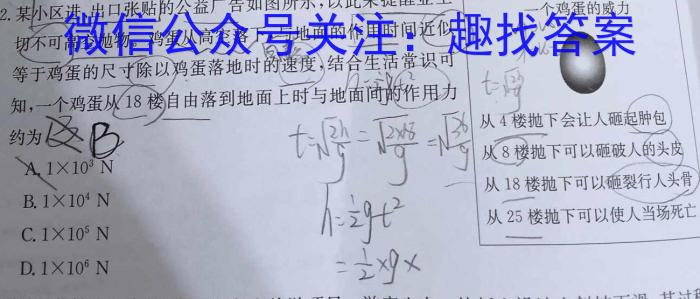 2.某小区进、出口张贴的公益广告如图所示,以此来提醒业主
切不可高空抛物。鸡蛋从高空落下与地面的作用时间近似
等于鸡蛋的尺寸除以鸡蛋落地时的速度,结合生活常识可
知,一个鸡蛋从18楼自由落到地面上时与地面间的作用力
约为
B
A. 1×10³ N
B. 1×10⁴ N
C. 1×10⁵ N
D. 1×10⁶ N
微信公众号关注:趣找答案
t=√2h/g=√2×18/g=√36/g
h=½gt²
=½×g×
一个鸡蛋的威力
t=√2h/g
从4楼抛下会让人砸起肿包
从8楼抛下可以砸破人的头皮
从18楼抛下可以砸裂行人头骨
从25楼抛下可以使人当场死亡